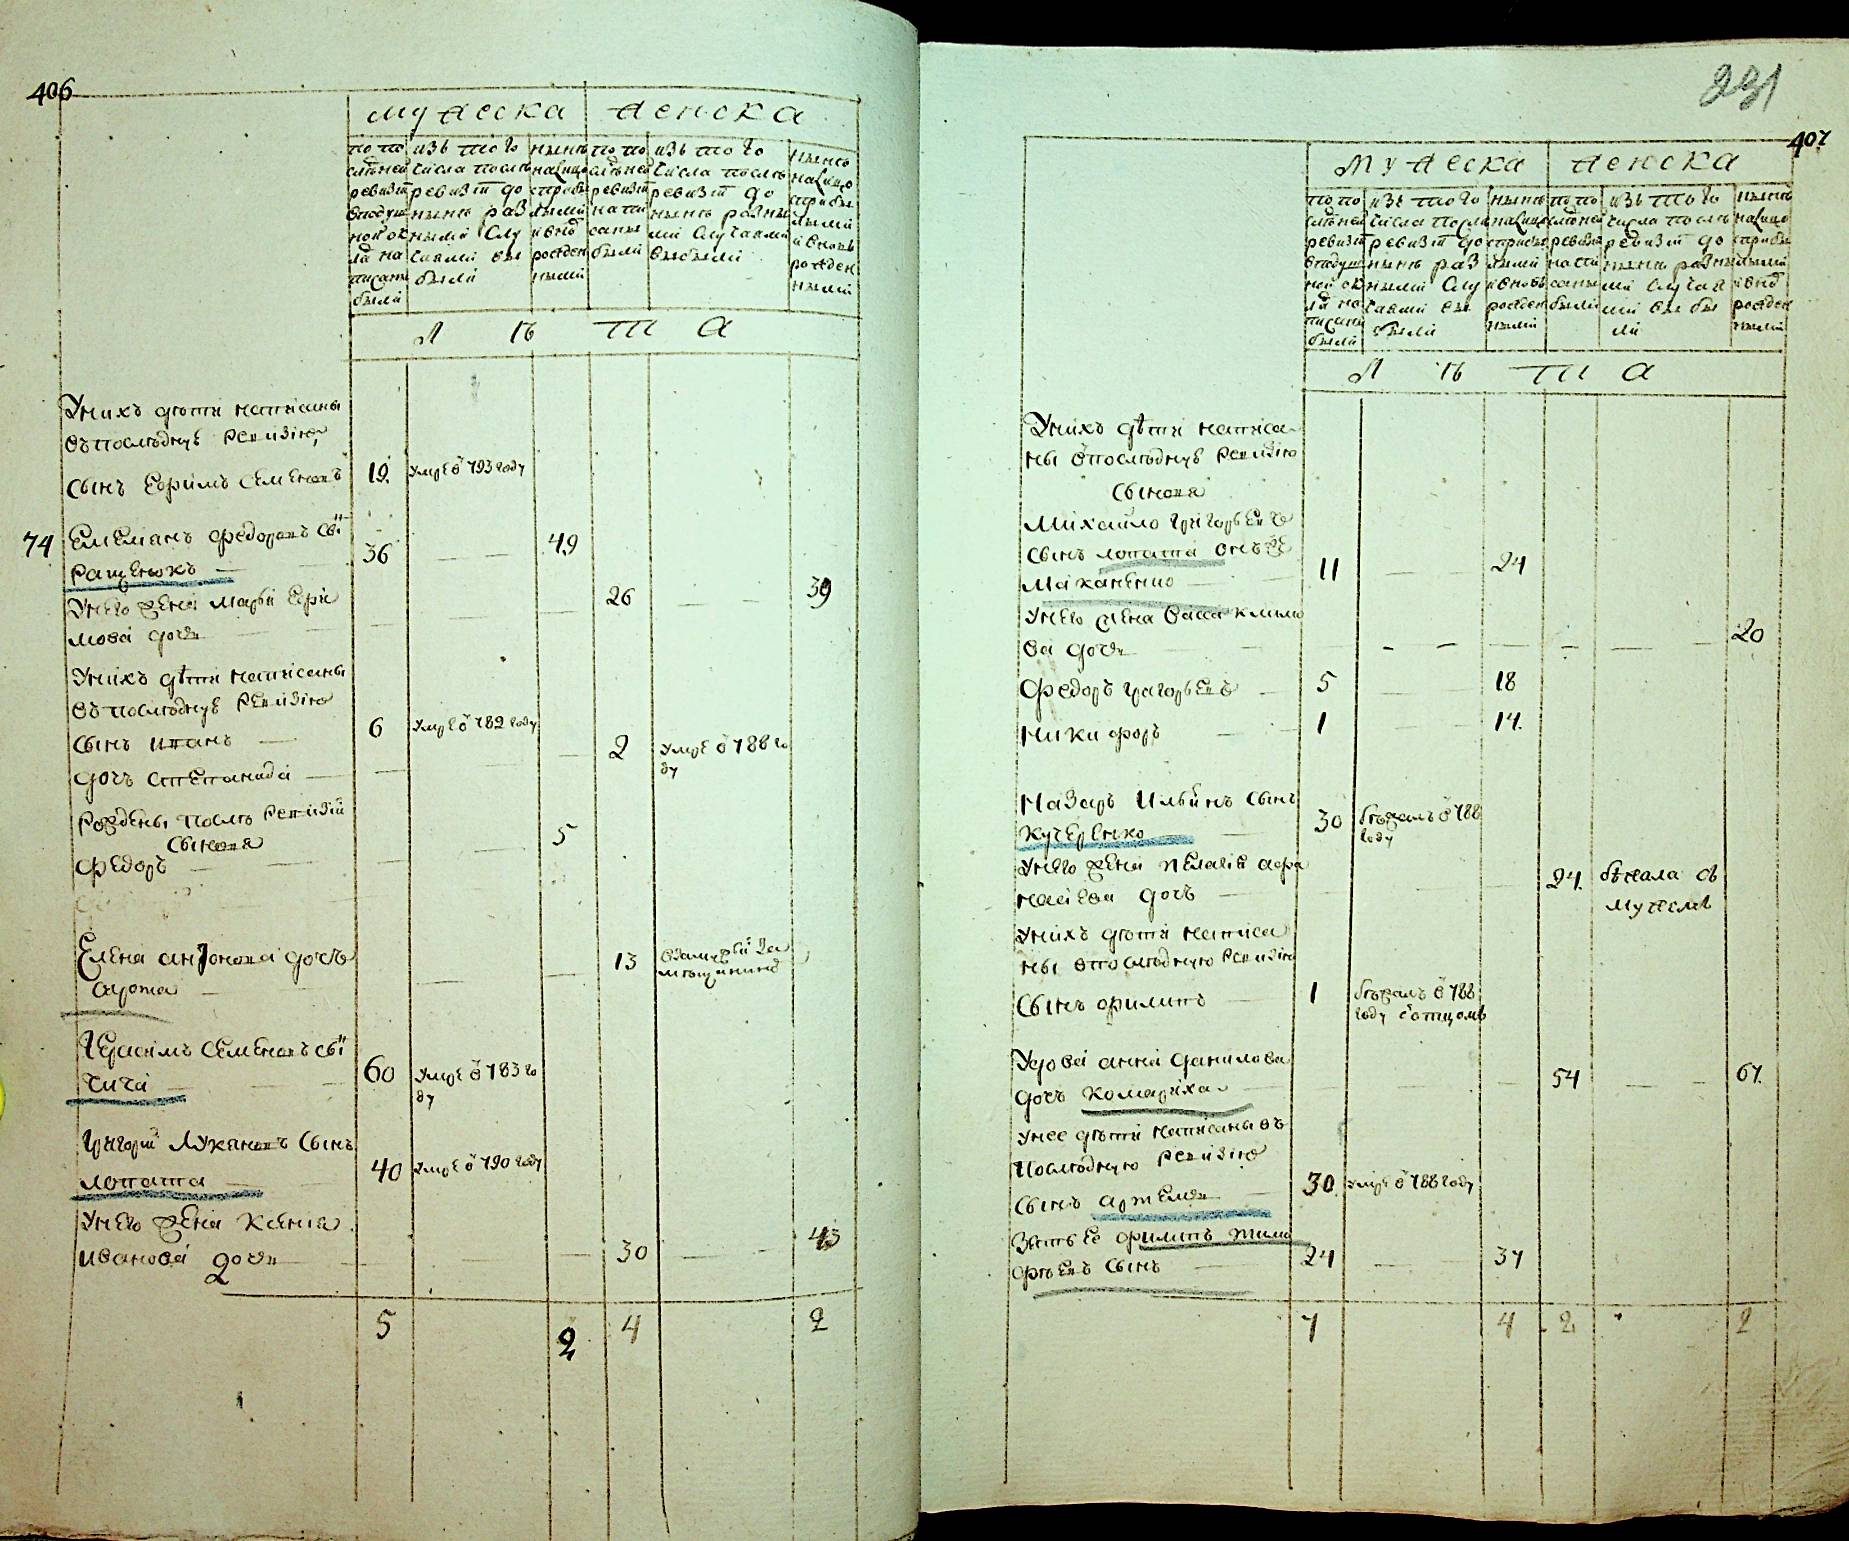 406
мужеска женска
по по
слѣдней
ревизіи
в подуш
ной ок
ладъ на
писаны
были
изъ того
числа послѣ
ревизіи до
нынѣ раз
ными слу
чаями вы
были
нынѣ
на лицо
съ прибы
лыми
и вновь
рожден
ными
по по
слѣдней
ревизіи
напи
саны
были
изъ того
числа послѣ
ревизіи до
нынѣ разны
ми случаями
выбыли
нынѣ
на лицо
съ прибы
лыми
и вновь
рожден
ными
л ѣ т а
У нихъ дѣти написаны
въ последную ревизію
сынъ Ефримъ Семеновъ 19 умре в 793 году
74 Емельянъ Федоровъ сы
36 49
У него жена Марья Ефри
мова дочь 26 39
У нихъ дѣти написаны
въ последную ревизию
сынъ Иванъ 6 умре в 782 году
дочь Степанида 2 умре в 788 го
ду
Рождены после ревизіи
сыновя
Федоръ 5
Елена Антонова дочь
Сирота 13
Герасимъ Семеновъ сы
Чича 60 умре в 783 го
ду
Григорій Лукяновъ сынъ
Лопата 40 умре в 790 году
У него жена Ксения
Иванова дочь 30 43
5 2 4 2
231
407
мужеска женска
по по
слѣдней
ревизіи
в подуш
ной ок
ладъ на
писаны
были
изъ того
числа послѣ
ревизіи до
нынѣ раз
ными слу
чаями вы
были
нынѣ
на лицо
съ прибы
лыми
и вновь
рожден
ными
по по
слѣдней
ревизіи
напи
саны
были
изъ того
числа послѣ
ревизіи до
нынѣ разны
ми случая
ми вы бы
ли
нынѣ
на лицо
съ прибы
лыми
и внов
рожден
ными
л ѣ т а
У нихъ дѣти написа
ны в последную ревизію
сыновя
Михайло Григорьевъ
сынъ Лопата онъ же
Маканенко 11 24
У него жена Васа Климо
ва дочь 20
Федоръ Григорьевъ 5 18
Никифоръ 1 14
Назаръ Ильинъ сынъ
Кучеренко 30 бѣжалъ в 788
году
У него жена Пелагія Афа
насіева дочь 24 бежала съ
мужемъ
У нихъ дѣти написа
ны в последную ревизію
сынъ Филипъ 1 бѣжалъ в 788
году с отцомъ
Удова Анна Данилова
дочь Комариха 54 67
У нее дѣти написаны въ
последную ревизию
сынъ Артемъ 30 умре в 788 году
Зять ее Филипъ Тимо
фѣевъ сынъ 24 37
7 4 2 2